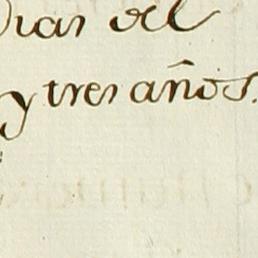 Dias del
y tres años.